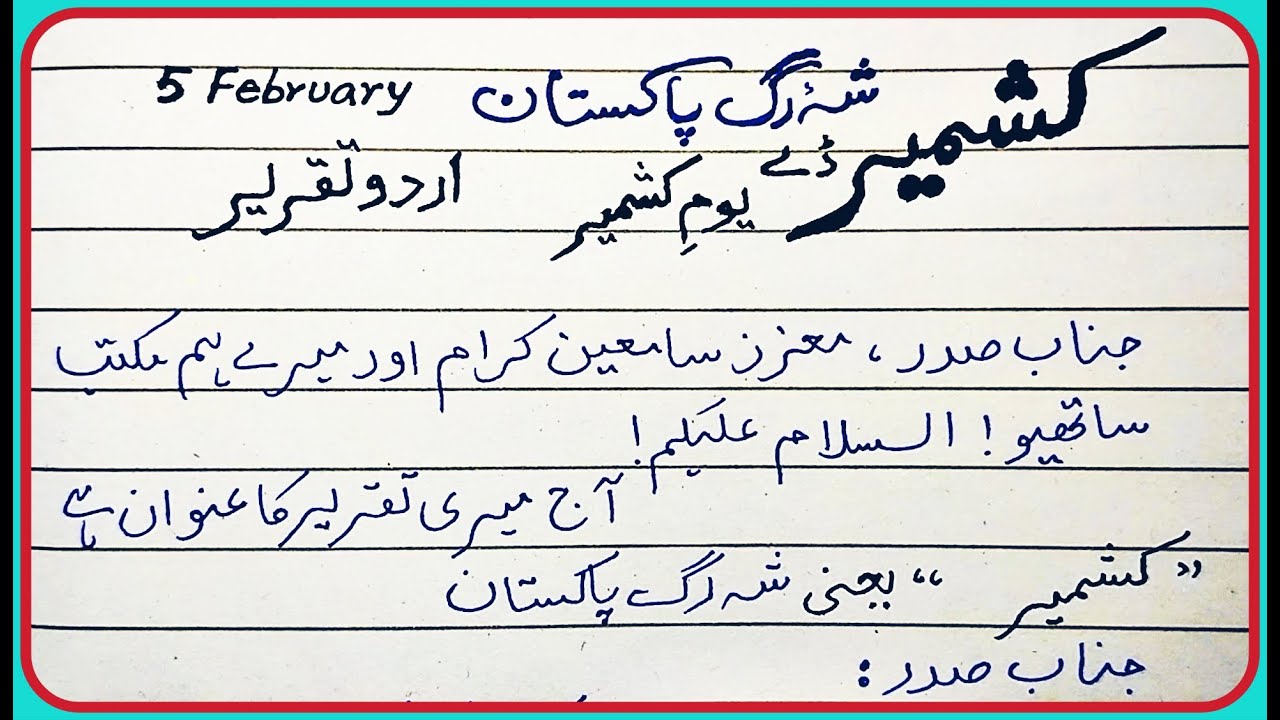 کشمیر شہ رگ پاکستان 5 February
ڈے یومِ کشمیر اردو تقریر
جناب صدر، معزز سامعین کرام اور میرے ہم مکتب
ساتھیو! السلام علیکم!
آج میری تقریر کا عنوان ہے
”کشمیر“ یعنی شہ رگ پاکستان
جناب صدر: